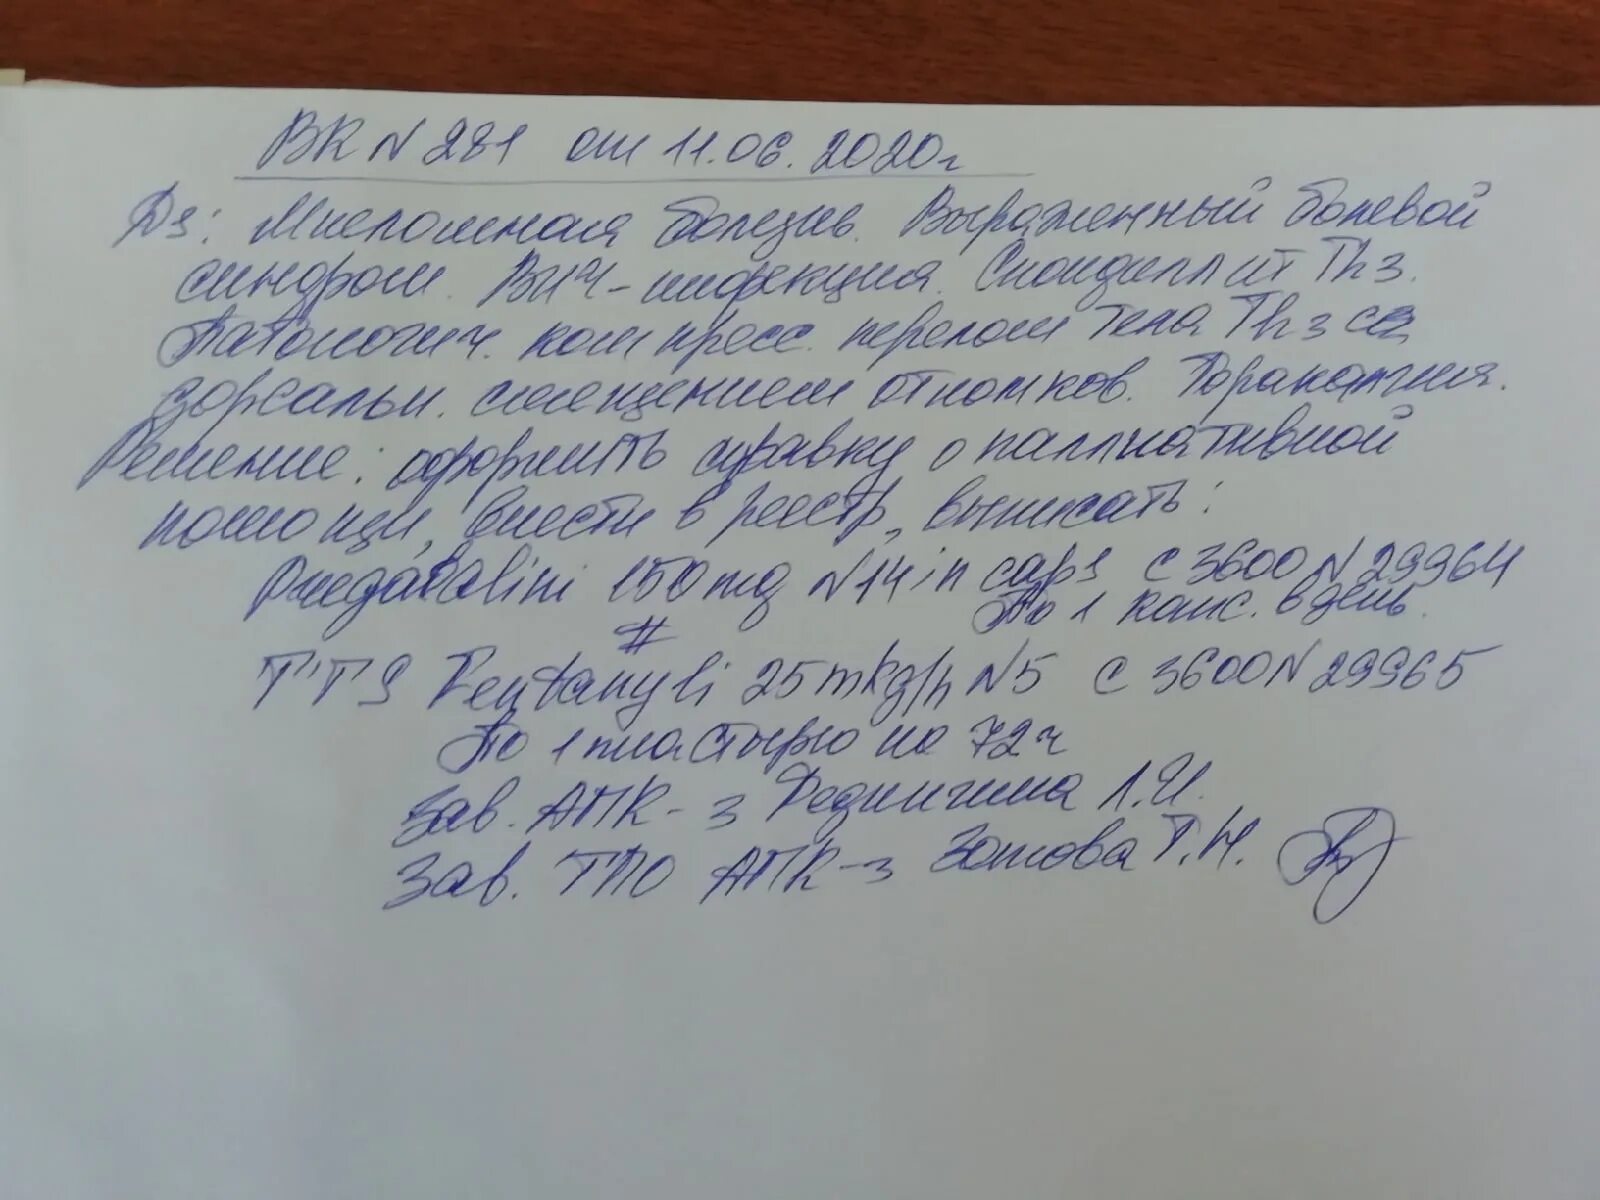 ВК N 281 от 11.06.2020г
Ds: Миеломная болезнь. Выраженный болевой
синдром. ВИЧ-инфекция. Спондиллит Th3.
Патологич. компресс. перелом тела Th3 с
дорсальн. смещением отломков. Торакалгия.
Решение: оформить справку о паллиативной
помощи, внести в реестр, выписать:
Pregabalini 150mg N14 in caps с 3600 N 29964
По 1 капс. в день.
#
TTS Fentanyli 25 mkg/h N5 с 3600 N 29965
По 1 пластырю на 72ч
Зав. АПК-3 Л.И.
Зав. ТПО АПК-3 Зотова Т.Н.